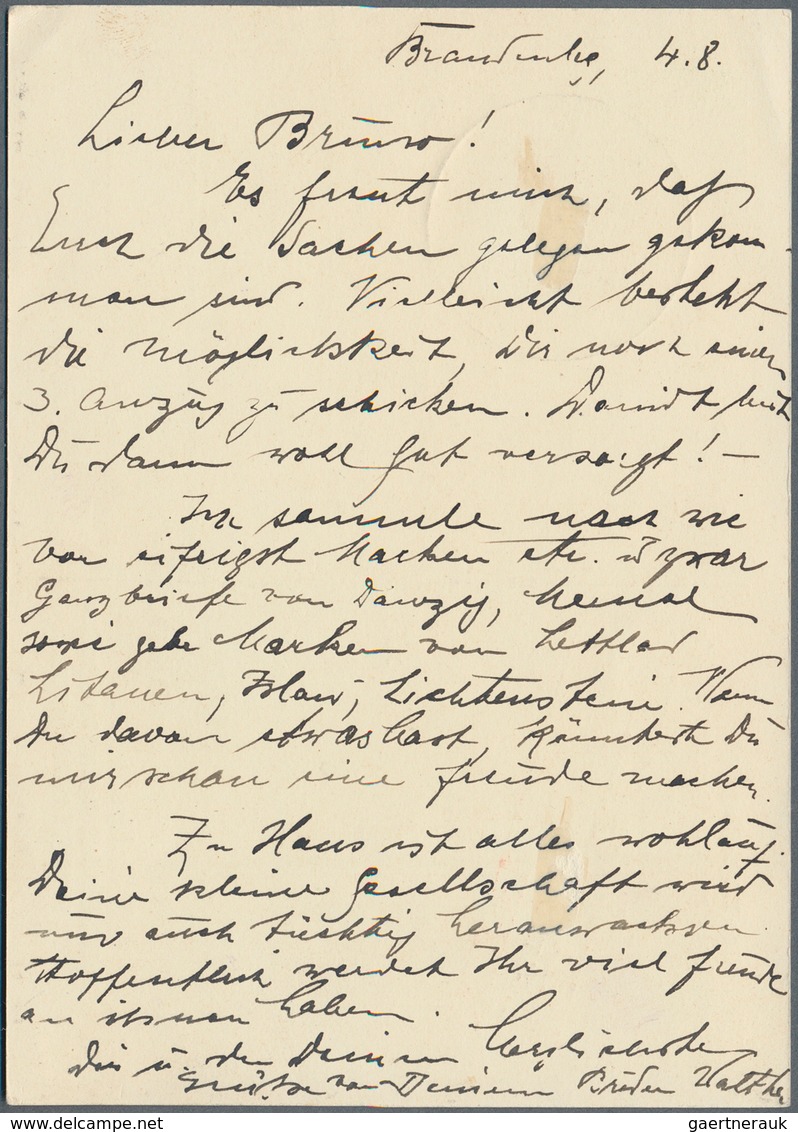 Brandenbg, 4.8.
Lieber Bruno!
Es freut mich, daß
Euch die Sachen gelegen gekom-
men sind. Vielleicht besteht
die Möglichkeit, Dir noch einen
3. Anzug zu schicken. Damit bist
Du dann wohl gut versorgt! —
Ich sammle nach wie
vor eifrigst Marken etc. u zwar
Ganzbriefe von Danzig, Memel
sowie gebr Marken von Lettland
Litauen, Island, Lichtenstein. Wenn
Du davon etwas hast, könntest Du
mir schon eine Freude machen.
Zu Haus ist alles wohlauf.
Deine kleine Gesellschaft wird
nun auch tüchtig heranwachsen.
Hoffentlich werdet Ihr viel Freude
an ihnen haben.
Dir u. den Deinen herzlichste
Grüße von Deinem Bruder Walther
gaertnerauk